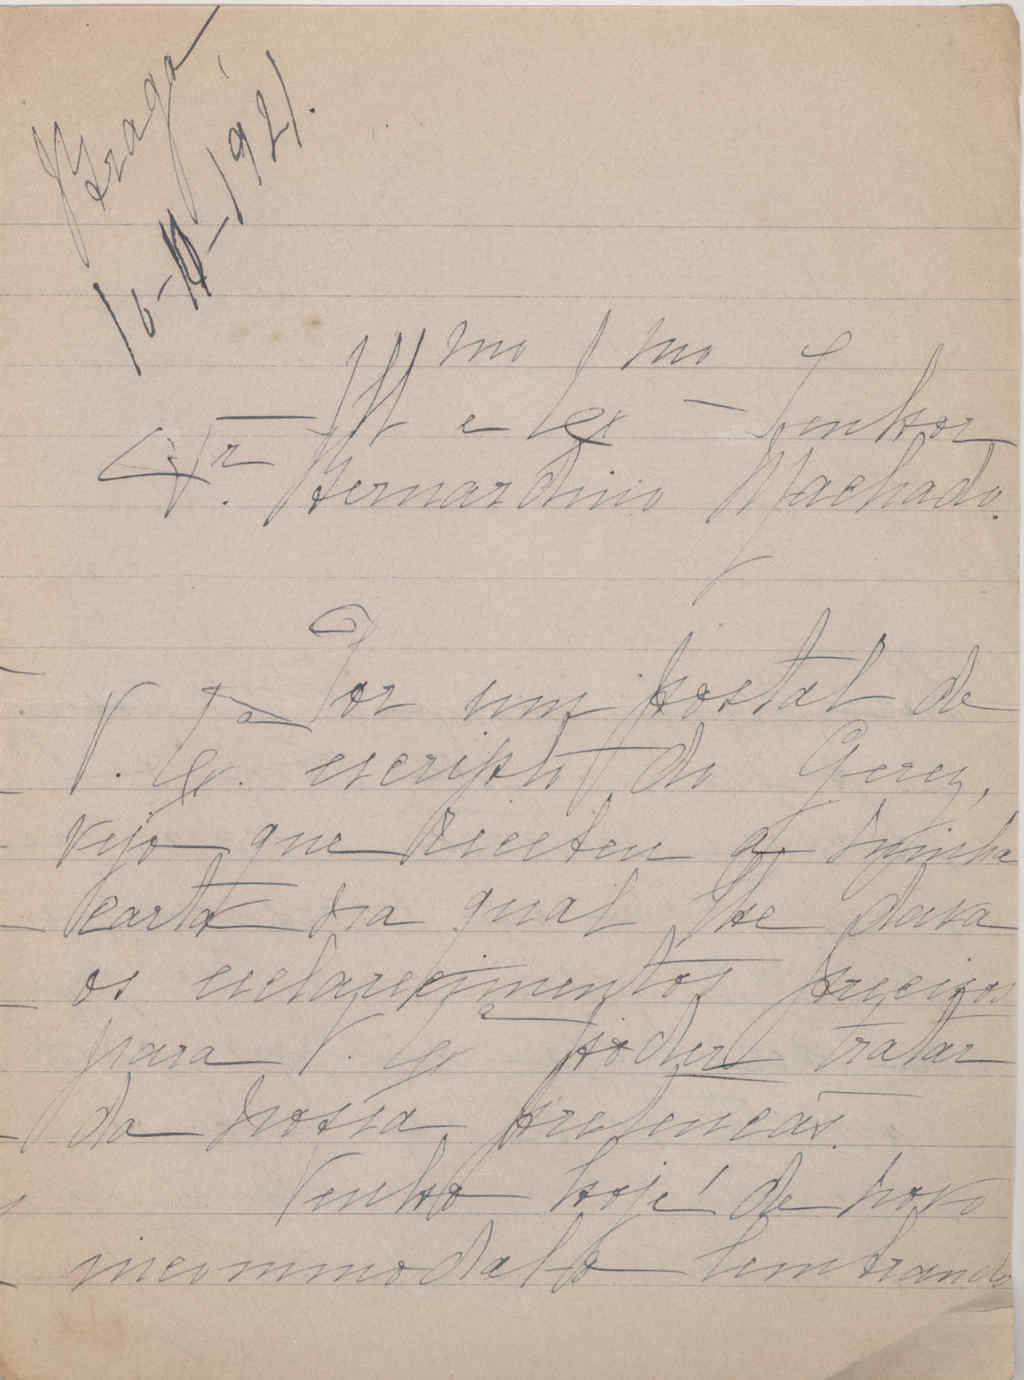 Braga
10-11-1921.
Ill.mo e Ex.mo Senhor
Dr. Bernardino Machado.
Por um postal de
V. Ex.a escripto do Gerez,
vejo que recebeu a minha
carta na qual lhe dava
os esclarecimentos precisos
para V. Ex.a poder tratar
da nossa pretenção.
Venho hoje de novo
incommodal-o lembrando